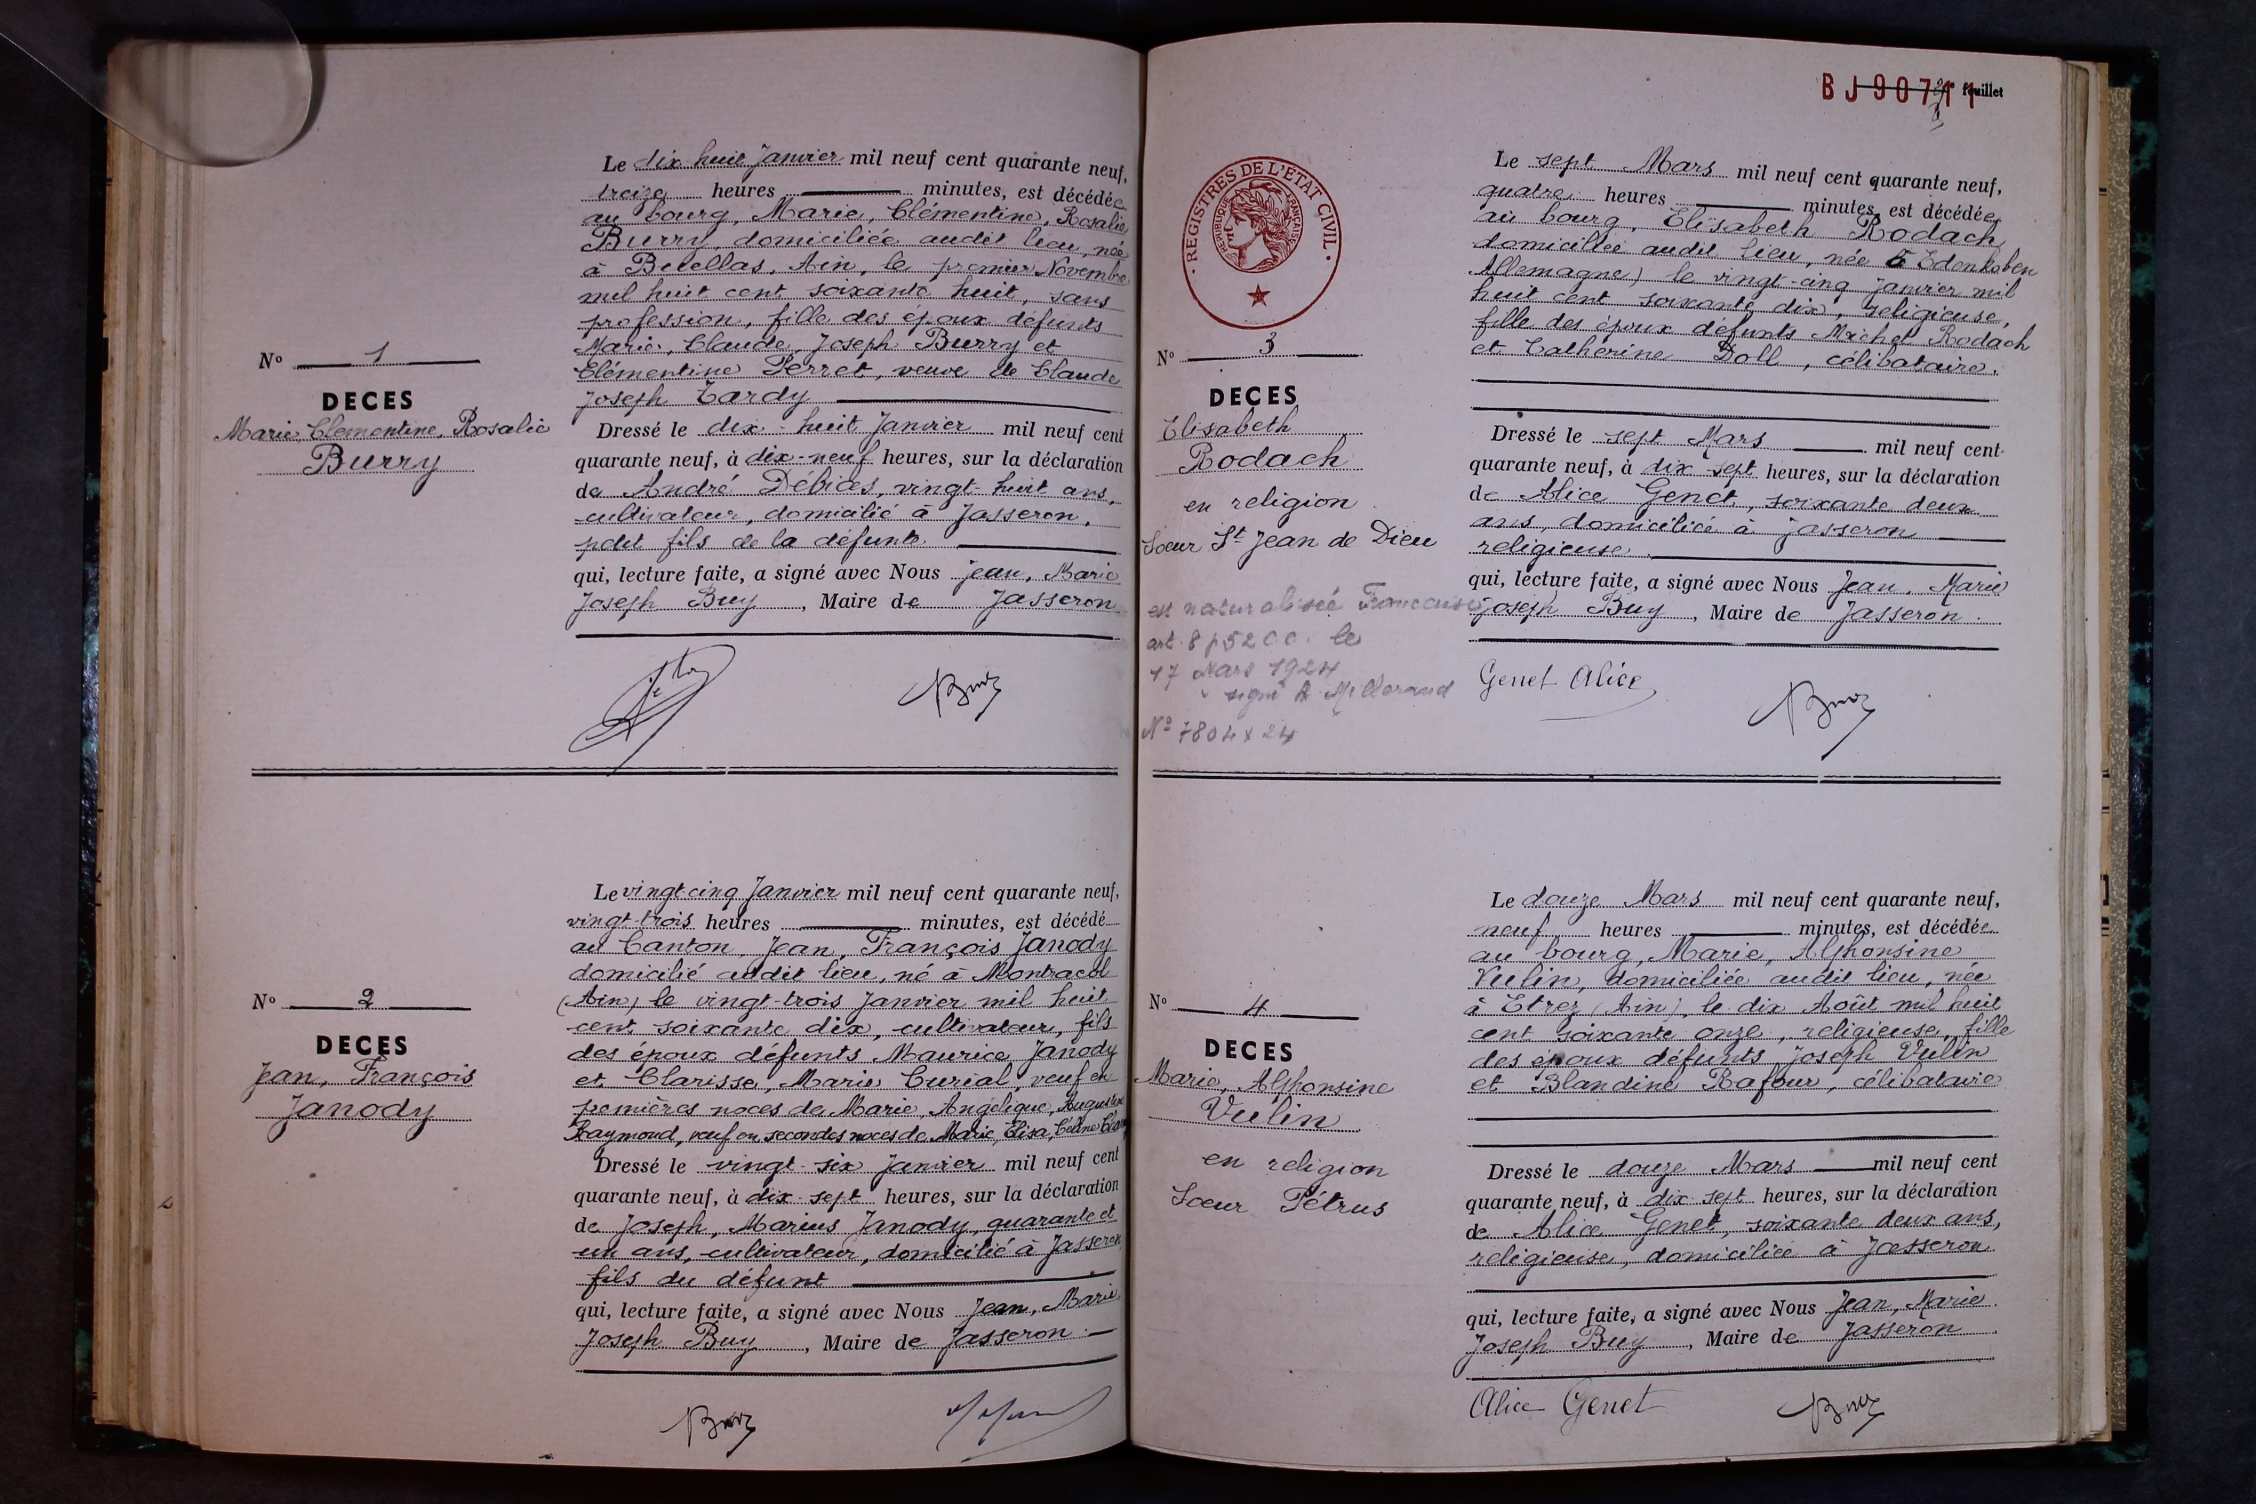 Le dix huit Janvier mil neuf cent quarante neuf,
treize heures minutes, est décédée
au bourg, Marie, Clémentine, Rosalie
Burry, domiciliée audit lieu, née
à Ain, le premier Novembre
mil huit cent soixante huit, sans
profession, fille des époux défunts
Marie, Claude, Joseph Burry et
Clémentine Perret, veuve de Claude
Joseph Tardy
N° 1
DECES
Marie, Clémentine, Rosalie
Burry
Dressé le dix-huit Janvier mil neuf cent
quarante neuf, à dix-neuf heures, sur la déclaration
de André vingt-huit ans,
cultivateur, domicilié à Jasseron,
petit fils de la défunte
qui, lecture faite, a signé avec Nous Jean, Marie
Joseph Buy, Maire de Jasseron
Le vingt-cinq Janvier mil neuf cent quarante neuf,
vingt-trois heures minutes, est décédé
au Canton, Jean, François Janody
domicilié audit lieu, né à Montracol
(Ain) le vingt-trois Janvier mil huit
cent soixante dix, cultivateur, fils
des époux défunts Maurice Janody
et Clarisse, Marie Curial, veuf en
premières noces de Marie, Angélique, Augustine
Raymond, veuf en secondes noces de Marie, Elisa, Céline
N° 2
DECES
Jean, François
Janody
Dressé le vingt-six Janvier mil neuf cent
quarante neuf, à dix-sept heures, sur la déclaration
de Joseph, Marius Janody, quarante et
un ans, cultivateur, domicilié à Jasseron
fils du défunt
qui, lecture faite, a signé avec Nous Jean, Marie
Joseph Buy, Maire de Jasseron
BJ90711
feuillet
REGISTRES DE L'ETAT CIVIL
REPUBLIQUE FRANÇAISE
Le sept Mars mil neuf cent quarante neuf,
quatre heures minutes, est décédée
au bourg, Elisabeth Rodach
domiciliée audit lieu, née à Edenkoben
Allemagne) le vingt-cinq janvier mil
huit cent soixante dix, religieuse,
fille des époux défunts Michel Rodach
et Catherine Doll, célibataire.
N° 3
DECES
Elisabeth
Rodach
en religion
Soeur St Jean de Dieu
est naturalisée Française
art. 8 p 5200 le
17 Mars 1924
signé A Millerand
N° 7804 x 24
Dressé le sept Mars mil neuf cent
quarante neuf, à dix sept heures, sur la déclaration
de Alice Genet, soixante deux
ans, domiciliée à Jasseron
religieuse
qui, lecture faite, a signé avec Nous Jean, Marie
Joseph Buy, Maire de Jasseron.
Genet Alice
Le douze Mars mil neuf cent quarante neuf,
neuf heures minutes, est décédée
au bourg, Marie, Alphonsine
Vulin, domiciliée audit lieu, née
à Etrez (Ain), le dix Août mil huit
cent soixante onze, religieuse, fille
des époux défunts Joseph Vulin
et Blandine Rafour, célibataire
N° 4
DECES
Marie, Alphonsine
Vulin
en religion
Soeur Pétrus
Dressé le douze Mars mil neuf cent
quarante neuf, à dix sept heures, sur la déclaration
de Alice Genet, soixante deux ans,
religieuse, domiciliée à Jasseron
qui, lecture faite, a signé avec Nous Jean, Marie
Joseph Buy, Maire de Jasseron
Alice Genet